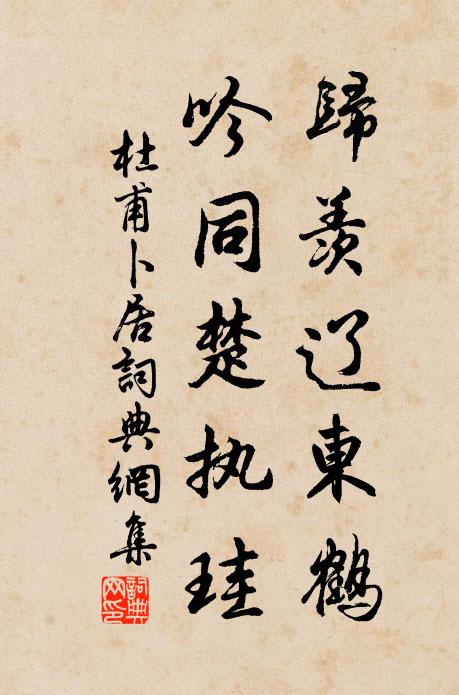 歸羨辽東鶴
吟同楚执珪
杜甫卜居詞典網集
詞典網印